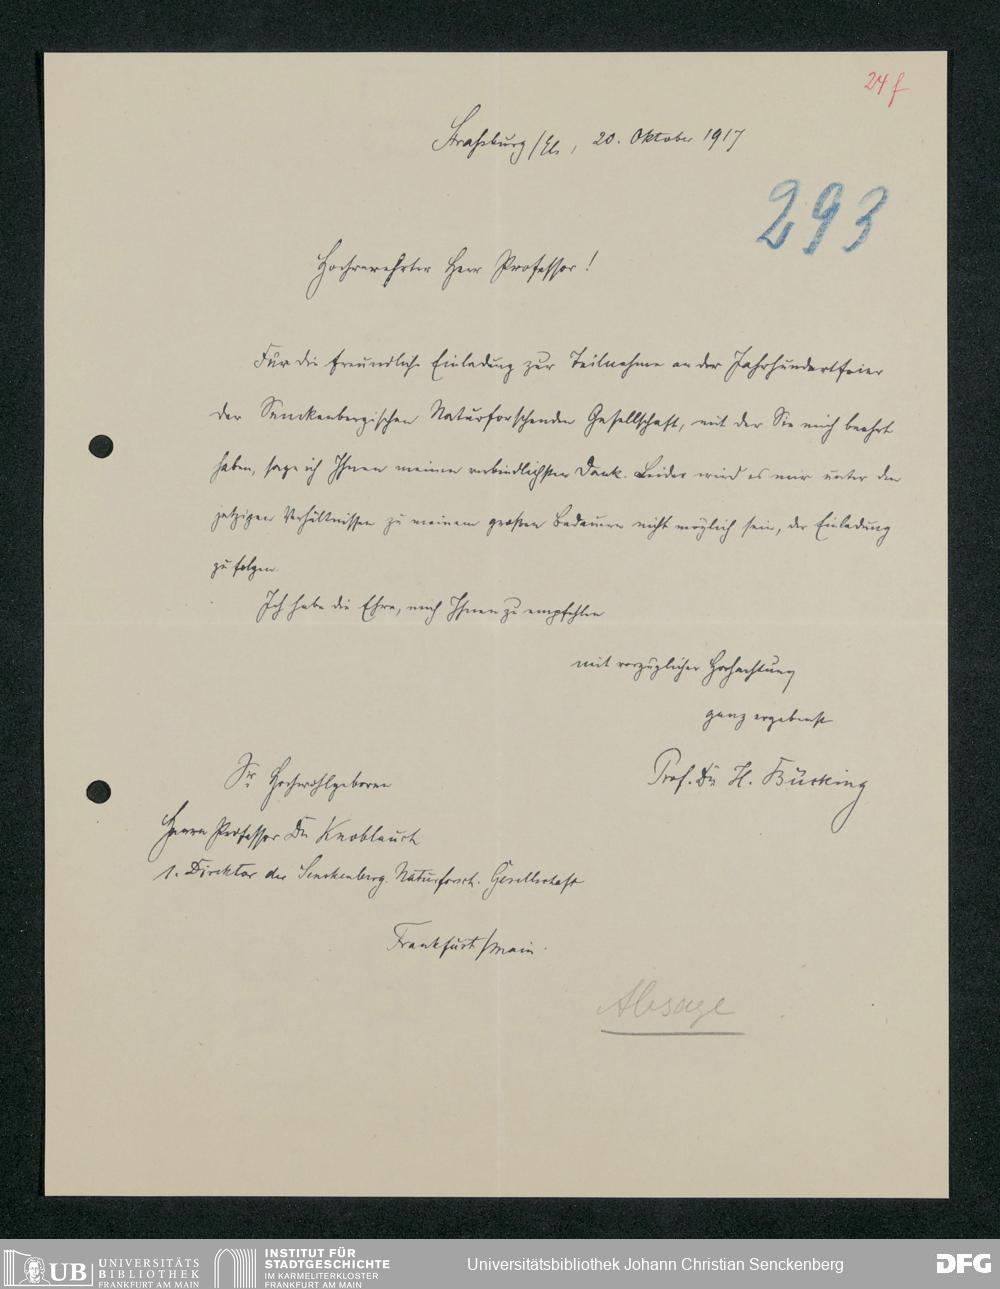 24 f
Straßburg/Els, 20. Oktober 1917
293
Hochverehrter Herr Professor!
Für die freundliche Einladung zur Teilnahme an der Jahrhundertfeier
der Senckenbergischen Naturforschenden Gesellschaft, mit der Sie mich beehrt
haben, sage ich Ihnen meinen verbindlichsten Dank. Leider wird es mir unter den
jetzigen Verhältnissen zu meinem großen Bedauern nicht möglich sein, der Einladung
zu folgen.
Ich habe die Ehre, mich Ihnen zu empfehlen
mit vorzüglicher Hochachtung
ganz ergebenst
Prof. Dr. H. Bücking
Sr. Hochwohlgeboren
Herrn Professor Dr. Knoblauch
1. Direktor der Senckenberg. Naturforsch. Gesellschaft
Frankfurt/Main.
Absage
UB UNIVERSITÄTS
BIBLIOTHEK
FRANKFURT AM MAIN
INSTITUT FÜR
STADTGESCHICHTE
IM KARMELITERKLOSTER
FRANKFURT AM MAIN
Universitätsbibliothek Johann Christian Senckenberg
DFG